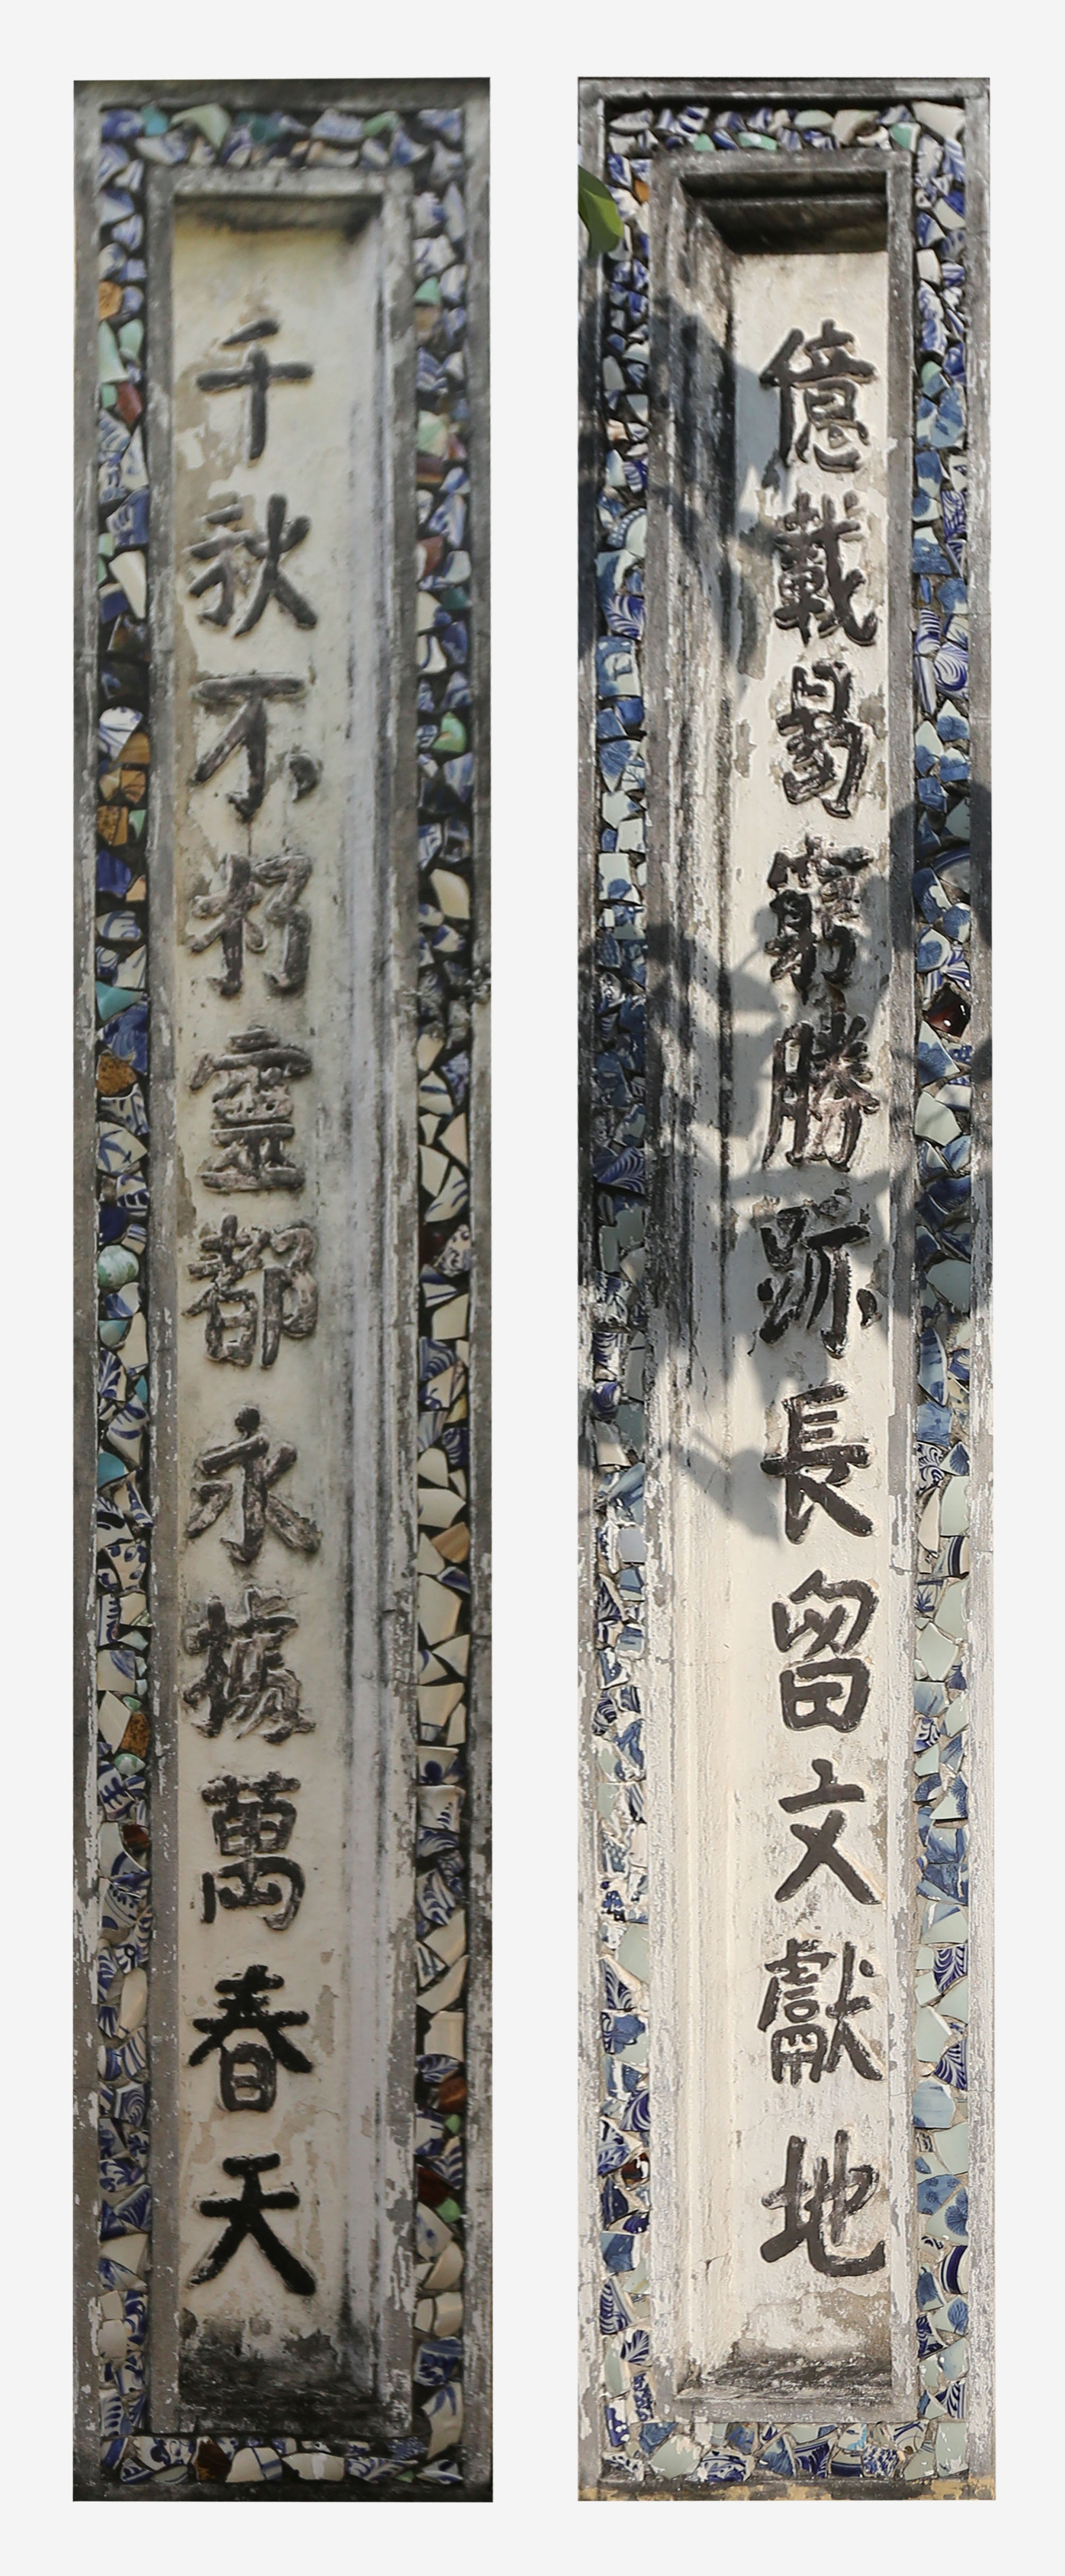 億載曷窮勝跡長留文獻地
千秋不朽靈都永據萬春天